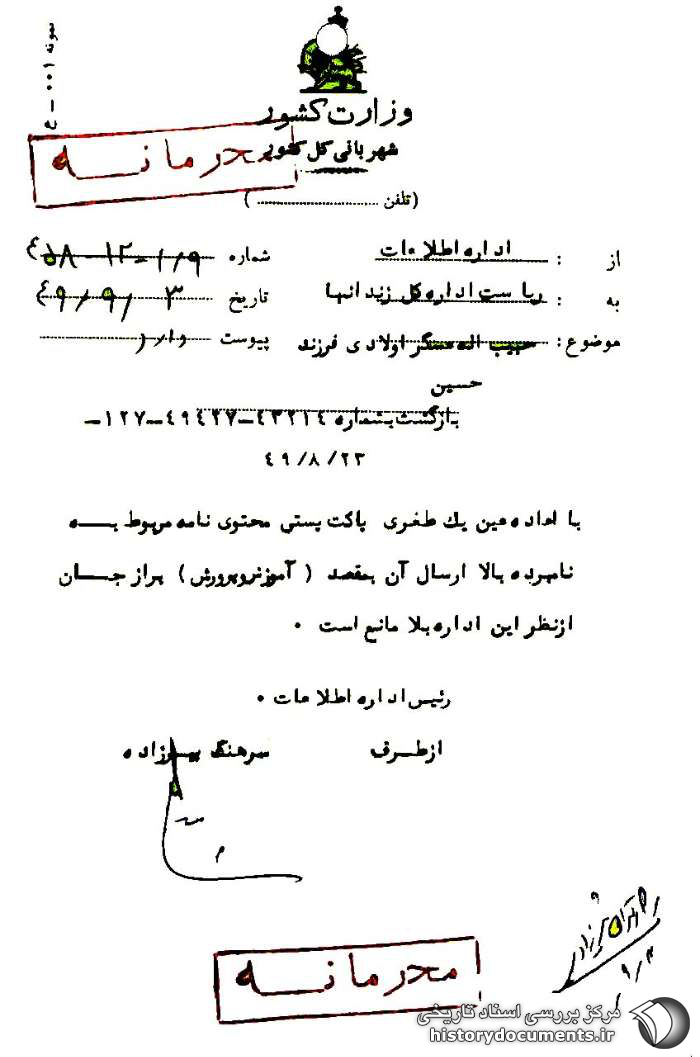 نمونه ۰۰۱ - ع
وزارت کشور
شهربانی کل کشور
محرمانه
(تلفن ........................)
از : اداره اطلاعات
شماره
به : ریاست اداره کل زندانها
تاریخ ۴۹/۹/۳
موضوع : حبیب اله عسگراولادی فرزند حسین
پیوست دارد
بازگشت بشماره ۴۳۲۱۴-۴۹۴۲۷-۱۲۷-
۴۹/۸/۲۳
با اعاده عین یك طغری پاکت پستی محتوی نامه مربوط به
نامبرده بالا ارسال آن بمقصد (آموزش و پرورش) برازجان
از نظر این اداره بلا مانع است ۰
رئیس اداره اطلاعات ۰
از طرف سرهنگ بهزاده
محرمانه
۹/۳
مرکز بررسی اسناد تاریخی
historydocuments.ir